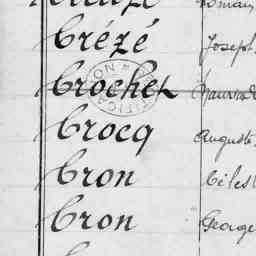 Crézé Joseph
Crochet
Crocq Auguste
Cron Célest
Cron George